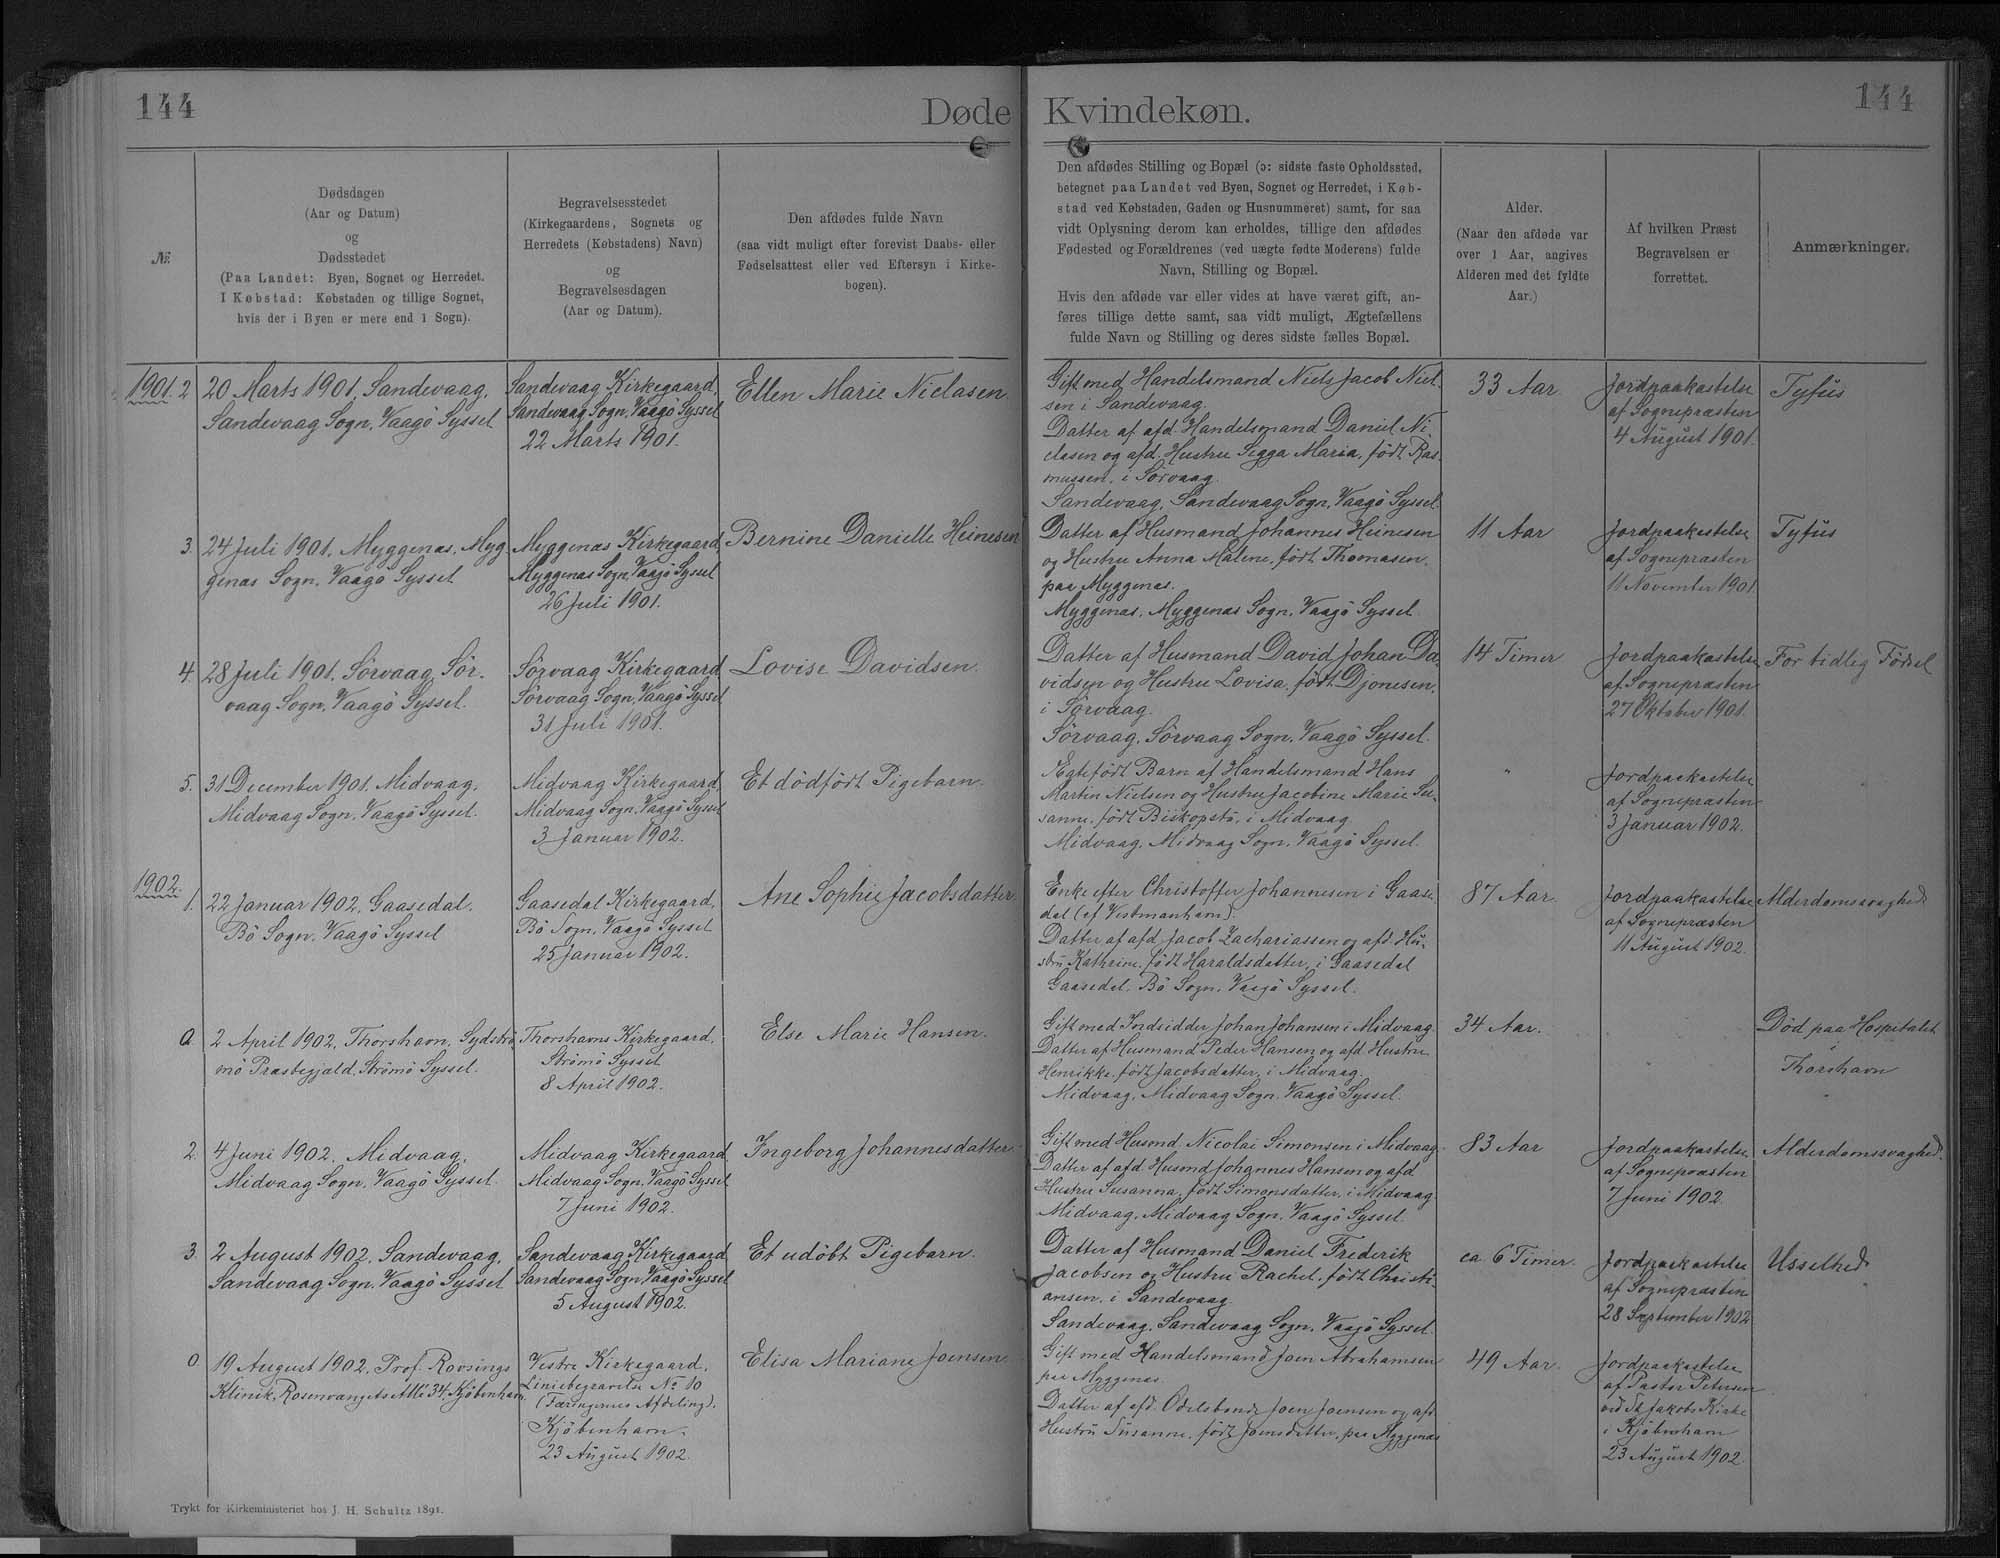 144
Døde
Kvindekøn.
144
№.
Dødsdagen
(Aar og Datum)
og
Dødsstedet
(Paa Landet: Byen, Sognet og Herredet.
I Købstad: Købstaden og tillige Sognet,
hvis der i Byen er mere end 1 Sogn).
Begravelsesstedet
(Kirkegaardens, Sognets og
Herredets (Købstadens) Navn)
og
Begravelsesdagen
(Aar og Datum).
Den afdødes fulde Navn
(saa vidt muligt efter forevist Daabs- eller
Fødselsattest eller ved Eftersyn i Kirke-
bogen).
Den afdødes Stilling og Bopæl (ɔ: sidste faste Opholdssted,
betegnet paa Landet ved Byen, Sognet og Herredet, i Køb-
stad ved Købstaden, Gaden og Husnummeret) samt, for saa
vidt Oplysning derom kan erholdes, tillige den afdødes
Fødested og Forældrenes (ved uægte fødte Moderens) fulde
Navn, Stilling og Bopæl.
Hvis den afdøde var eller vides at have været gift, an-
føres tillige dette samt, saa vidt muligt, Ægtefællens
fulde Navn og Stilling og deres sidste fælles Bopæl.
Alder.
(Naar den afdøde var
over 1 Aar, angives
Alderen med det fyldte
Aar.)
Af hvilken Præst
Begravelsen er
forrettet.
Anmærkninger.
1901. 2
20 Marts 1901, Sandevaag,
Sandevaag Sogn, Vaagö Syssel
Sandevaag Kirkegaard,
Sandevaag Sogn, Vaagö Syssel
22 Marts 1901.
Ellen Marie Niclasen
Gift med Handelsmand Niels Jacob Niel-
sen i Sandevaag.
Datter af afd. Handelsmand Daniel Ni-
clasen og afd. Hustru Sigga Maria, født Ras-
mussen, i Sörvaag.
Sandevaag, Sandevaag Sogn, Vaagö Syssel
33 Aar.
Jordpaakastelse
af Sognepræsten
4 August 1901.
Tyfus
3.
24 Juli 1901, Myggenæs, Myg-
genæs Sogn, Vaagö Syssel
Myggenæs Kirkegaard,
Myggenæs Sogn, Vaagö Syssel
26 Juli 1901.
Bernine Danielle Heinesen
Datter af Husmand Johannes Heinesen
og Hustru Anna Malene, født Thomasen,
paa Myggenæs.
Myggenæs, Myggenæs Sogn, Vaagö Syssel
11 Aar
Jordpaakastelse
af Sognepræsten
11 November 1901
Tyfus
4.
28 Juli 1901, Sörvaag, Sör-
vaag Sogn, Vaagö Syssel.
Sörvaag Kirkegaard
Sörvaag Sogn, Vaagö Syssel
31 Juli 1901.
Lovise Davidsen.
Datter af Husmand David Johan Da-
vidsen og Hustru Lovisa, født Djonesen,
i Sörvaag.
Sörvaag, Sörvaag Sogn, Vaagö Syssel.
14 Timer
Jordpaakastelse
af Sognepræsten
27 Oktober 1901.
For tidlig Födsel
5.
31 December 1901, Midvaag,
Midvaag Sogn, Vaagö Syssel.
Midvaag Kirkegaard,
Midvaag Sogn, Vaagö Syssel
3 Januar 1902.
Et dödfödt Pigebarn.
Ægtefødt Barn af Handelsmand Hans
Martin Nielsen og Hustru Jacobine Marie Su-
sanne, født Biskopstö, i Midvaag.
Midvaag, Midvaag Sogn, Vaagö Syssel.
"
Jordpaakastelse
af Sognepræsten
3 Januar 1902.
1902.
1.
22 Januar 1902, Gaasedal.
Bö Sogn, Vaagö Syssel
Gaasedal Kirkegaard,
Bö Sogn, Vaagö Syssel
25 Januar 1902.
Ane Sophie Jacobsdatter
Enke efter Christoffer Johannesen i Gaase-
dal (af Vestmanhavn).
Datter af afd. Jacob Zachariassen og afd. Hu-
stru Kathrine, født Haraldsdatter, i Gaasedal
Gaasedal, Bö Sogn, Vaagö Syssel.
87 Aar.
Jordpaakastelse
af Sognepræsten
11 August 1902.
Alderdomssvaghed.
0
2 April 1902, Thorshavn, Sydströ-
mö Præstegjæld, Strömö Syssel.
Thorshavns Kirkegaard,
Strömö Syssel
8 April 1902.
Else Marie Hansen.
Gift med Indsidder Johan Johansen i Midvaag.
Datter af Husmand Peder Hansen og afd. Hustru
Henrikke, født Jacobsdatter, i Midvaag.
Midvaag, Midvaag Sogn, Vaagö Syssel.
34 Aar.
Död paa Hospitalet
i
Thorshavn
2.
4 Juni 1902, Midvaag,
Midvaag Sogn, Vaagö Syssel.
Midvaag Kirkegaard
Midvaag Sogn, Vaagö Syssel
7 Juni 1902.
Ingeborg Johannesdatter
Gift med Husmd. Nicolai Simonsen i Midvaag.
Datter af afd. Husmd Johannes Hansen og afd
Hustru Susanna, født Simonsdatter, i Midvaag
Midvaag, Midvaag Sogn, Vaagö Syssel.
83 Aar
Jordpaakastelse
af Sognepræsten
7 Juni 1902
Alderdomssvaghed.
3.
2 August 1902, Sandevaag,
Sandevaag Sogn, Vaagö Syssel
Sandevaag Kirkegaard
Sandevaag Sogn, Vaagö Syssel
5 August 1902.
Et udöbt Pigebarn.
Datter af Husmand Daniel Frederik
Jacobsen og Hustru Rachel, født Christi-
ansen, i Sandevaag.
Sandevaag, Sandevaag Sogn, Vaagö Syssel.
ca. 6 Timer.
Jordpaakastelse
af Sognepræsten
28 September 1902
Usselhed
0
19 August 1902, Prof. Rovsings
Klinik, Rosenvængets Allé 34, Kjöbenhavn
Vestre Kirkegaard,
Liniebegravelse № 10
(Færingernes Afdeling),
Kjöbenhavn.
23 August 1902.
Elisa Mariane Joensen
Gift med Handelsmand Joen Abrahamsen
paa Myggenæs.
Datter af afd. Odelsbonde Joen Joensen og afd
Hustru Susanne, født Joensdatter, paa Myggenæs
49 Aar.
Jordpaakastelse
af Pastor Petersen
ved St Jakobs Kirke
i Kjöbenhavn
23 August 1902.
Trykt for Kirkeministeriet hos J. H. Schultz 1891.